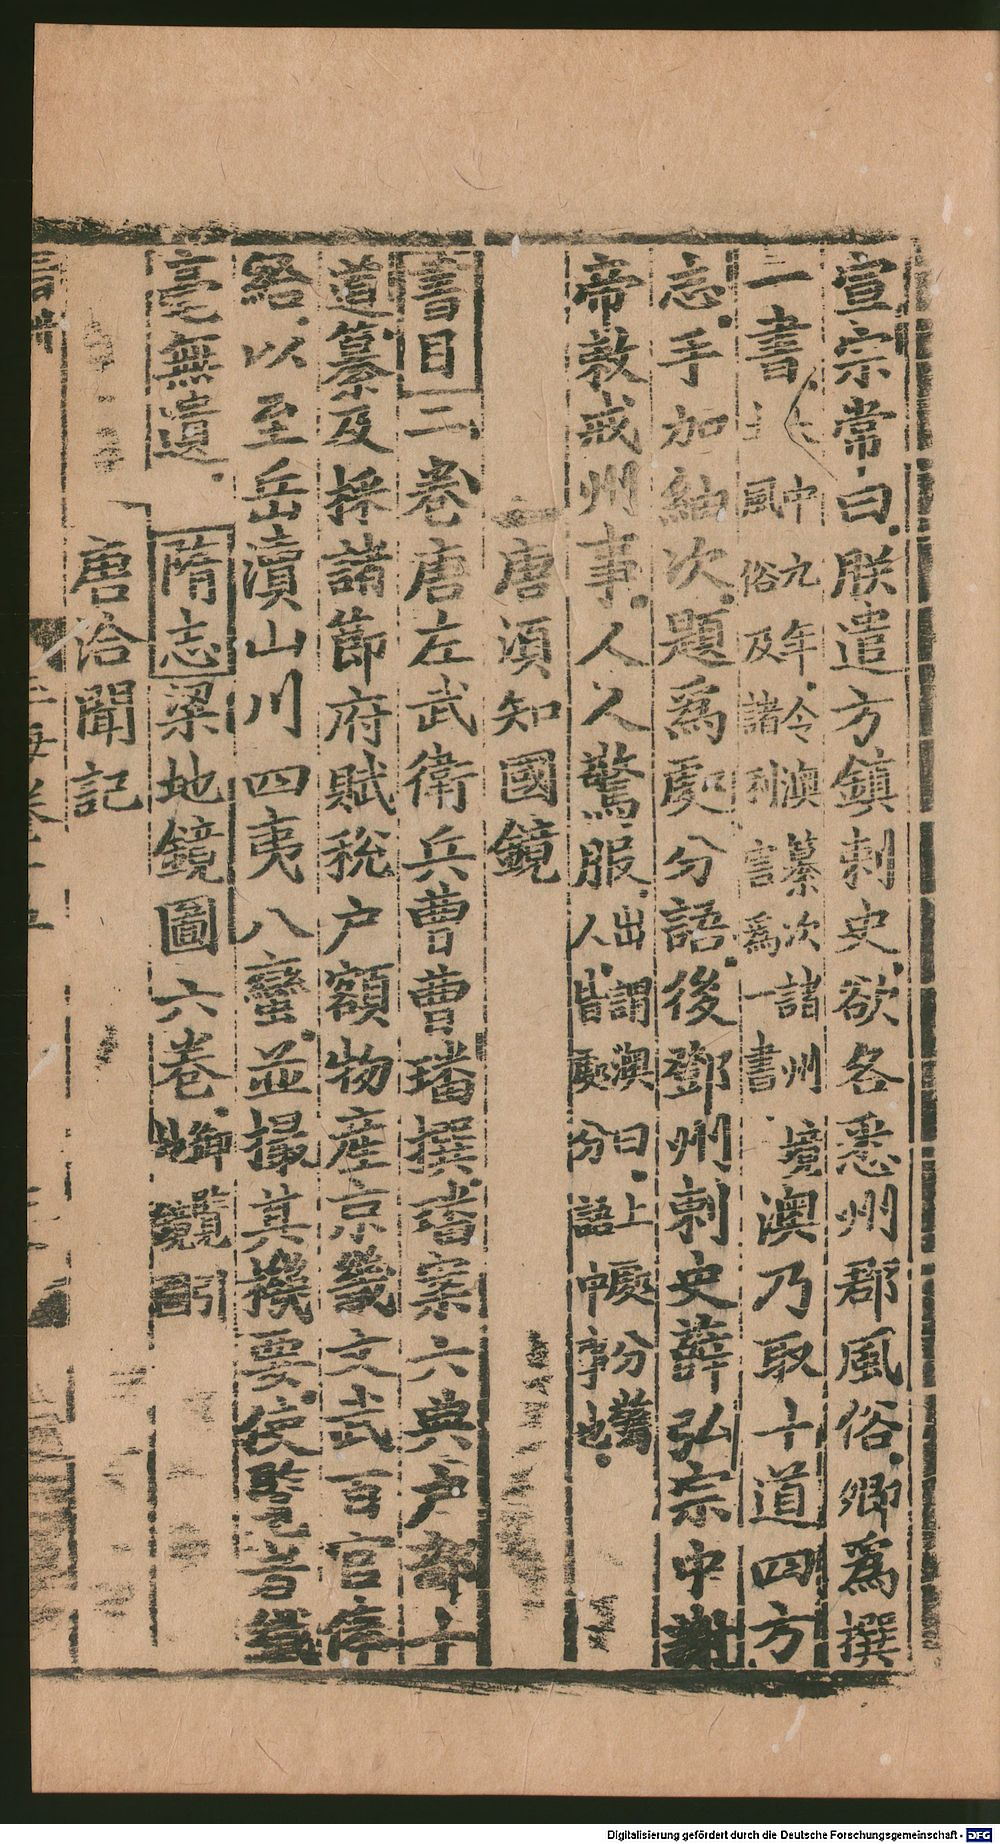 宣宗常曰朕遣方鎮刺史欲各悉州郡風俗卿爲撰
一書大中九年令澳纂次諸州境土風俗及諸利害爲一書澳乃取十道四方
志手加紬次題爲處分語後鄧州刺史薛弘宗中謝
帝敕戒州事人人驚服出謂澳曰上處分驚人皆處分語中事也
唐須知國鏡
書目二卷唐左武衛兵曹曹璠撰璠案六典户部十
道纂及採諸節府賦稅户額物產京畿文武百官俸
給以至岳瀆山川四夷八蠻並撮其機要使覽者纖
毫無遺 隋志梁地鏡圖六卷
唐洽聞記
玉海卷十五
Digitalisierung gefördert durch die Deutsche Forschungsgemeinschaft - DFG